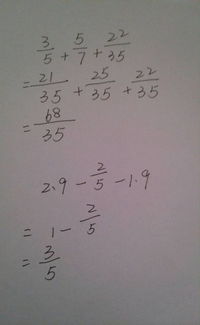 3/5 + 5/7 + 22/35
= 21/35 + 25/35 + 22/35
= 68/35
2.9 - 2/5 - 1.9
= 1 - 2/5
= 3/5